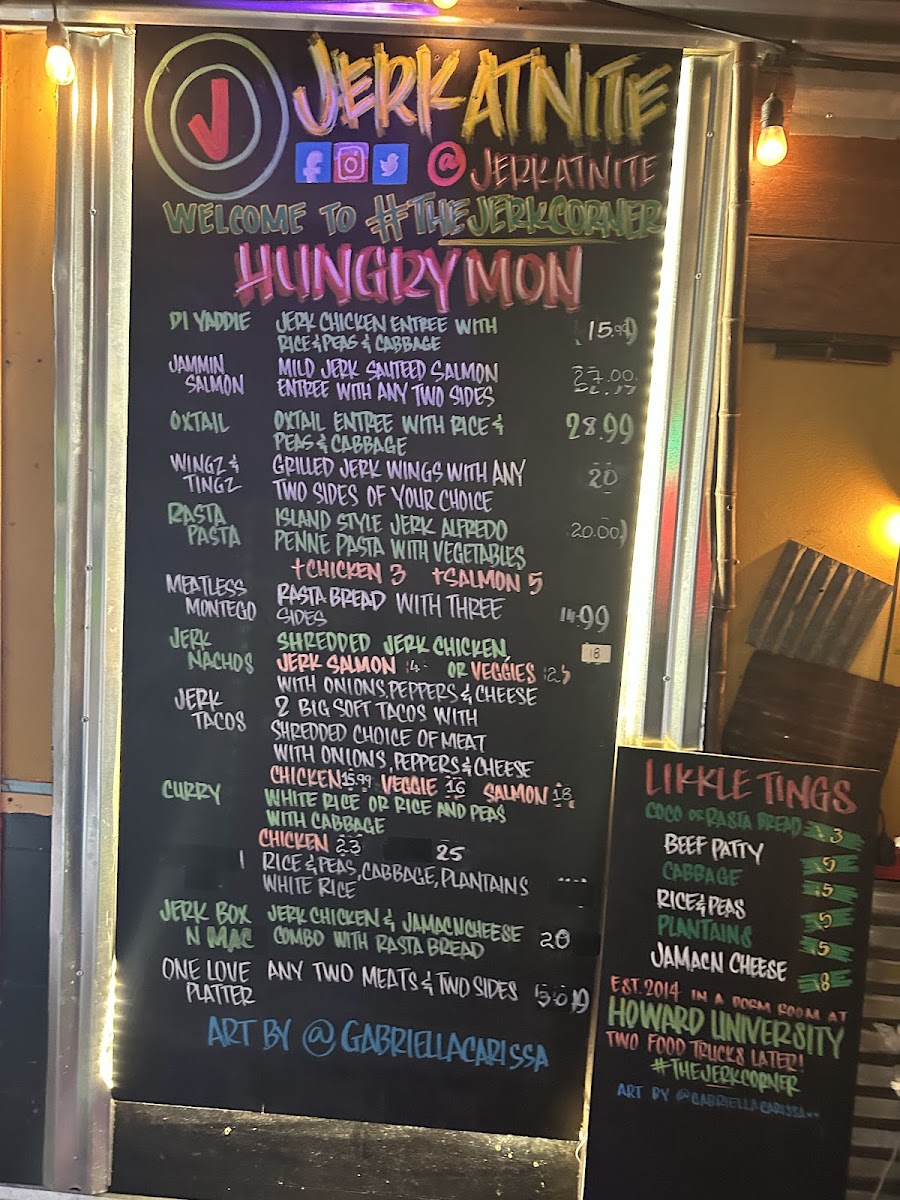 J JERKATNITE
@JERKATNITE
WELCOME TO #THEJERKCORNER
HUNGRY MON
DI YADDIE JERK CHICKEN ENTREE WITH 15.99
RICE & PEAS & CABBAGE
JAMMIN MILD JERK SAUTEED SALMON 27.00
SALMON ENTREE WITH ANY TWO SIDES
OXTAIL OXTAIL ENTREE WITH RICE & 28.99
PEAS & CABBAGE
WINGZ & GRILLED JERK WINGS WITH ANY 20
TINGZ TWO SIDES OF YOUR CHOICE
RASTA ISLAND STYLE JERK ALFREDO 20.00
PASTA PENNE PASTA WITH VEGETABLES
+CHICKEN 3 +SALMON 5
MEATLESS RASTA BREAD WITH THREE
MONTEGO SIDES
JERK SHREDDED JERK CHICKEN, 18
NACHOS JERK SALMON OR VEGGIES
WITH ONIONS, PEPPERS & CHEESE
JERK 2 BIG SOFT TACOS WITH
TACOS SHREDDED CHOICE OF MEAT
WITH ONIONS, PEPPERS & CHEESE
CHICKEN 15.99 VEGGIE 16 SALMON 18
CURRY WHITE RICE OR RICE AND PEAS
WITH CABBAGE
CHICKEN 23 25
RICE & PEAS, CABBAGE, PLANTAINS
WHITE RICE
JERK BOX JERK CHICKEN & JAMACNCHEESE 20
N MAC COMBO WITH RASTA BREAD
ONE LOVE ANY TWO MEATS & TWO SIDES
PLATTER
ART BY @GABRIELLACARISSA
LIKKLE TINGS
COCO OR RASTA BREAD 3
BEEF PATTY 5
CABBAGE 5
RICE & PEAS 5
PLANTAINS 5
JAMACN CHEESE 8
EST. 2014 IN A DORM ROOM AT
HOWARD UNIVERSITY
TWO FOOD TRUCKS LATER!
#THEJERKCORNER
ART BY @GABRIELLACARISSA